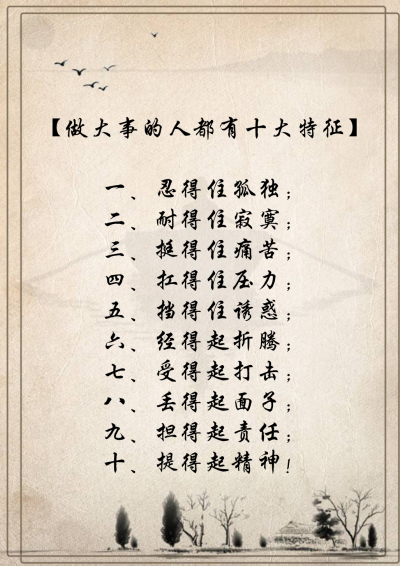 【做大事的人都有十大特征】
一、忍得住孤独；
二、耐得住寂寞；
三、挺得住痛苦；
四、扛得住压力；
五、挡得住诱惑；
六、经得起折腾；
七、受得起打击；
八、丢得起面子；
九、担得起责任；
十、提得起精神！